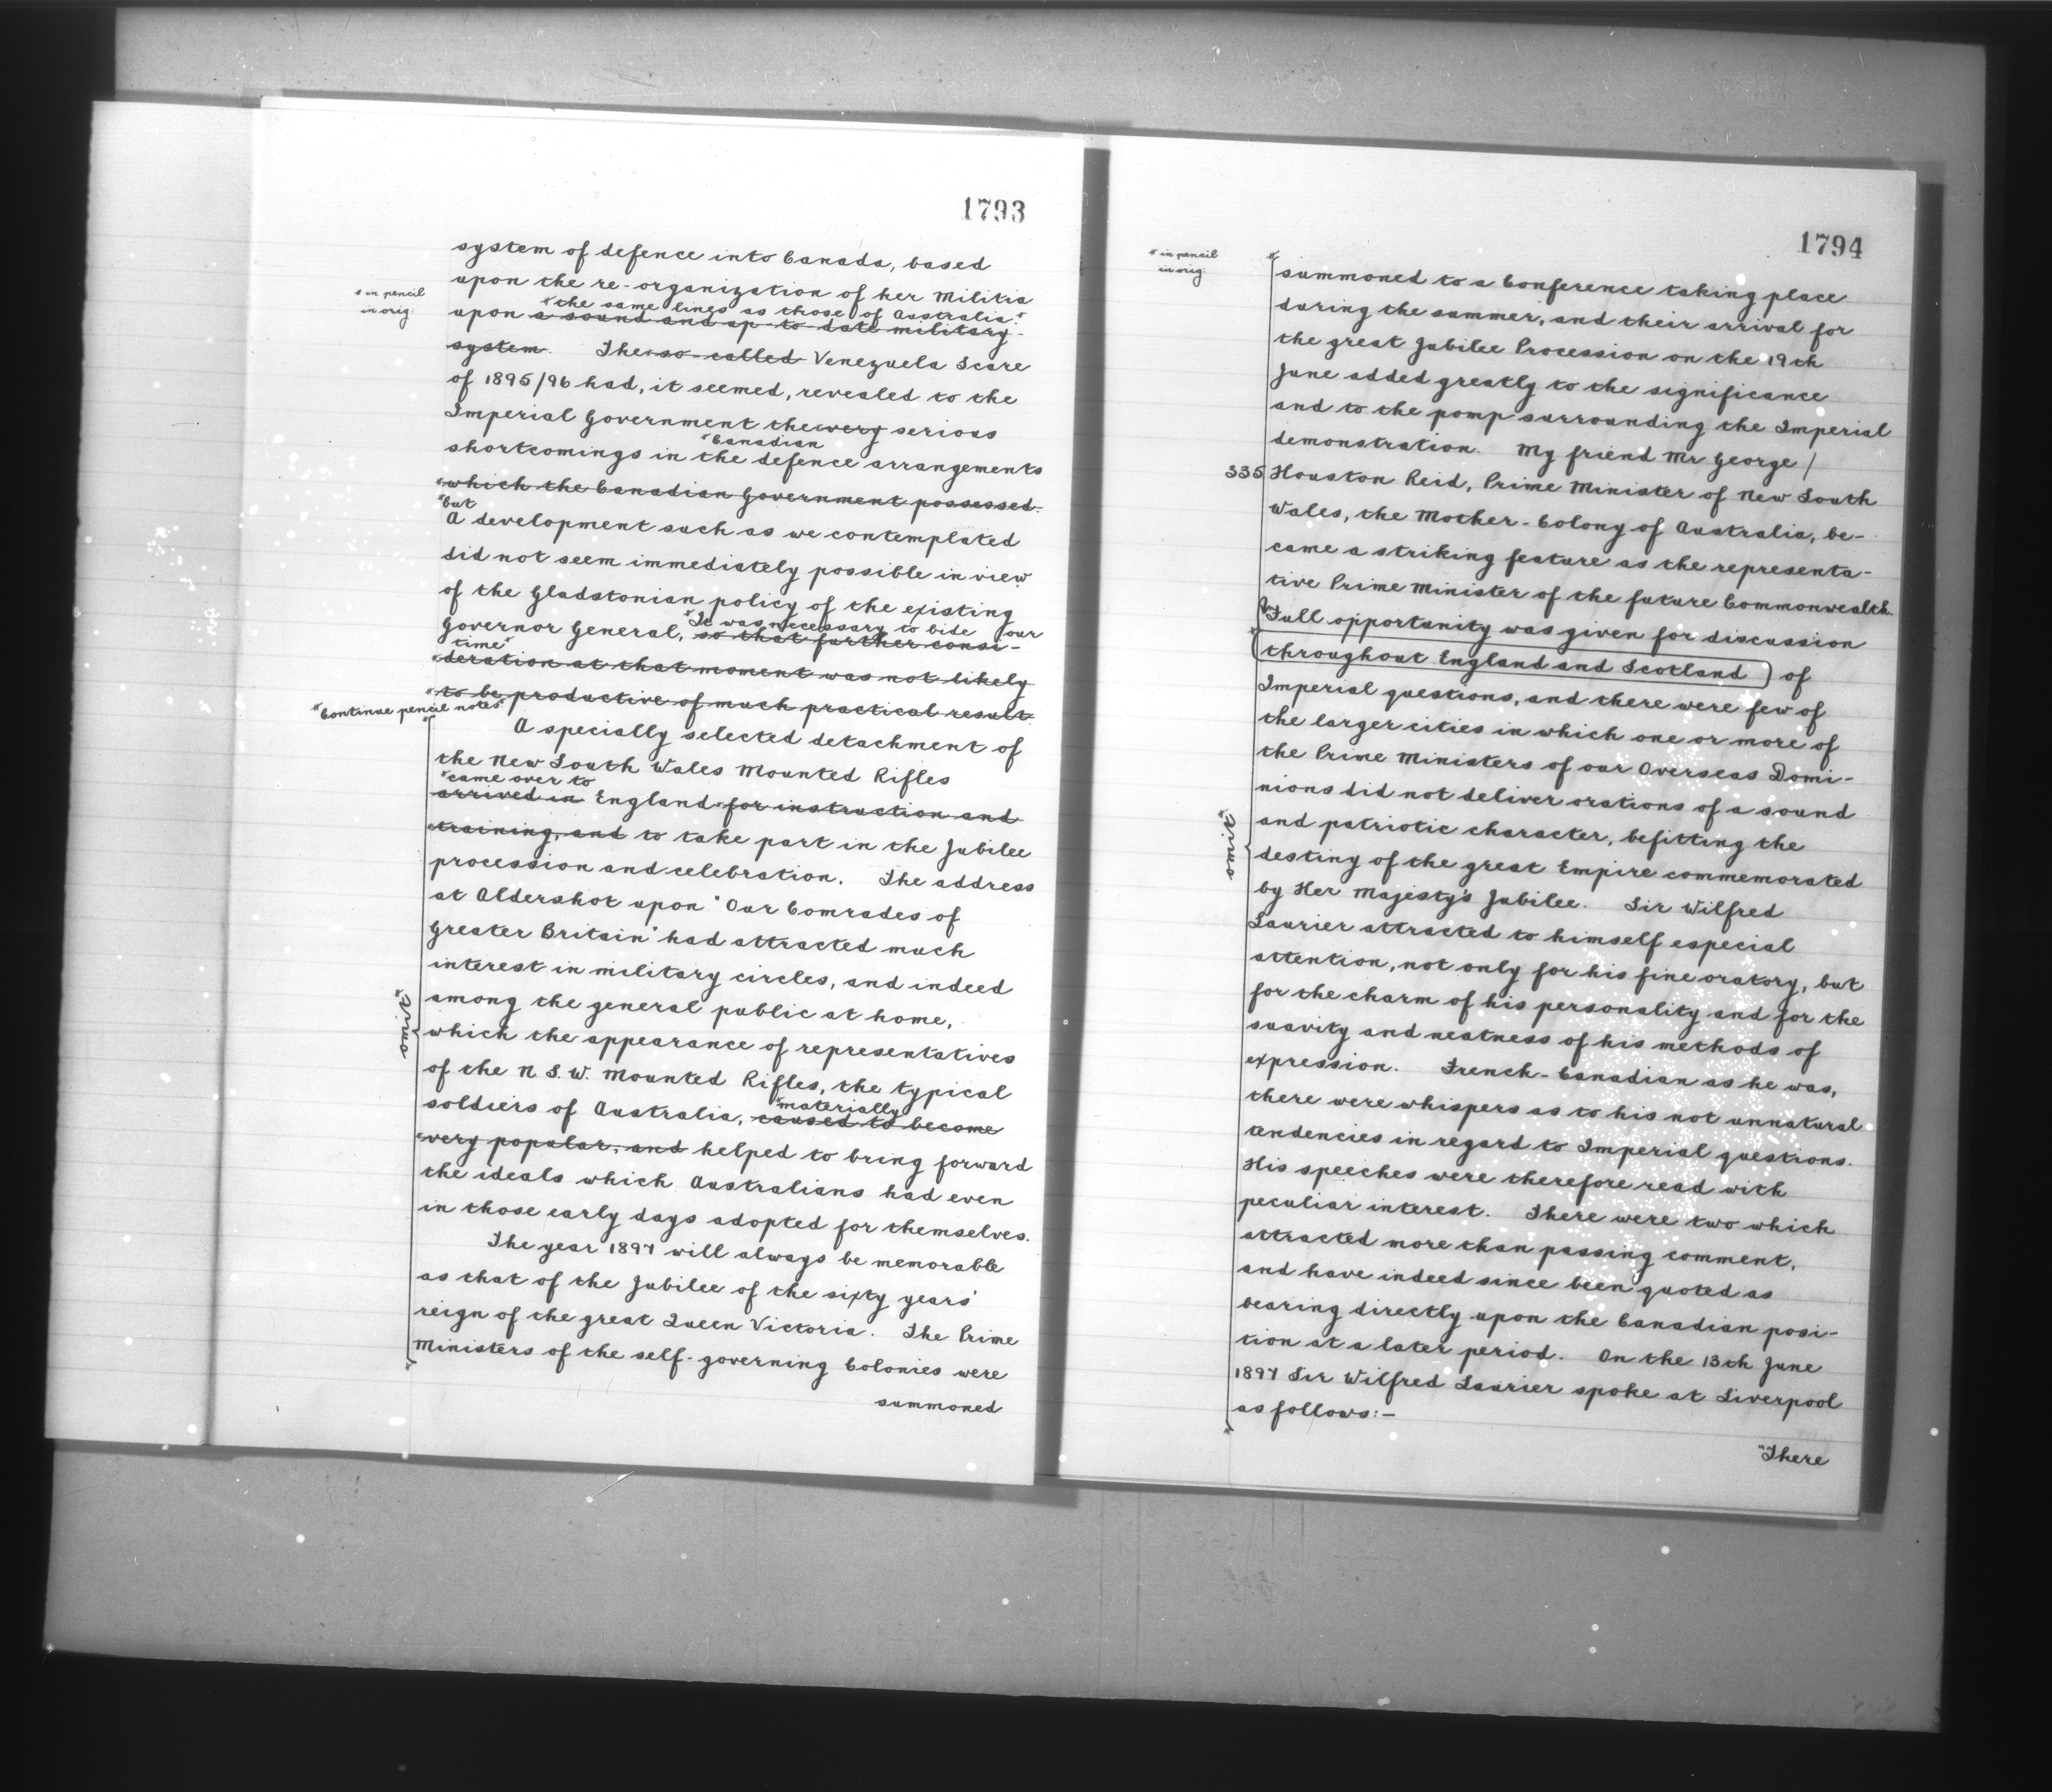 1793
system of defence into Canada, based
upon the re-organization of her Militia
* in pencil
in orig:
*the same lines as those of Australia.*
upon a sound and up-to-date military
system. The so-called Venezuela Scare
of 1895/96 had, it seemed, revealed to the
Imperial Government the very serious
*Canadian
shortcomings in the defence arrangements
*which the Canadian Government possessed.
*but
A development such as we contemplated
did not seem immediately possible in view
of the Gladstonian policy of the existing
*It was necessary to bide our
Governor General, so that further consi-
time*
*deration at that moment was not likely
*to be productive of much practical result.
*Continue pencil notes*
A specially selected detachment of
the New South Wales Mounted Rifles
*came over to
arrived in England *for instruction and
*training, and to take part in the Jubilee
procession and celebration. The address
at Aldershot upon "Our Comrades of
Greater Britain" had attracted much
interest in military circles, and indeed
among the general public at home,
which the appearance of representatives
of the N.S.W. Mounted Rifles, the typical
*materially
soldiers of Australia, caused to become
*very popular, and helped to bring forward
the ideals which Australians had even
in those early days adopted for themselves.
The year 1897 will always be memorable
as that of the Jubilee of the sixty years'
reign of the great Queen Victoria. The Prime
Ministers of the self-governing Colonies were
summoned
1794
* in pencil
in orig:
summoned to a Conference taking place
during the summer, and their arrival for
the great Jubilee Procession on the 19th
June added greatly to the significance
and to the pomp surrounding the Imperial
demonstration. My friend Mr George /
335 Houston Reid, Prime Minister of New South
Wales, the Mother-Colony of Australia, be-
came a striking feature as the representa-
tive Prime Minister of the future Commonwealth.
Full opportunity was given for discussion
throughout England and Scotland) of
Imperial questions, and there were few of
the larger cities in which one or more of
the Prime Ministers of our Overseas Domi-
nions did not deliver orations of a sound
and patriotic character, befitting the
destiny of the great Empire commemorated
by Her Majesty's Jubilee. Sir Wilfred
Laurier attracted to himself especial
attention, not only for his fine oratory, but
for the charm of his personality and for the
suavity and neatness of his methods of
expression. French-Canadian as he was,
there were whispers as to his not unnatural
tendencies in regard to Imperial questions.
His speeches were therefore read with
peculiar interest. There were two which
attracted more than passing comment,
and have indeed since been quoted as
bearing directly upon the Canadian posi-
tion at a later period. On the 13th June
1897 Sir Wilfred Laurier spoke at Liverpool
as follows:-
"There